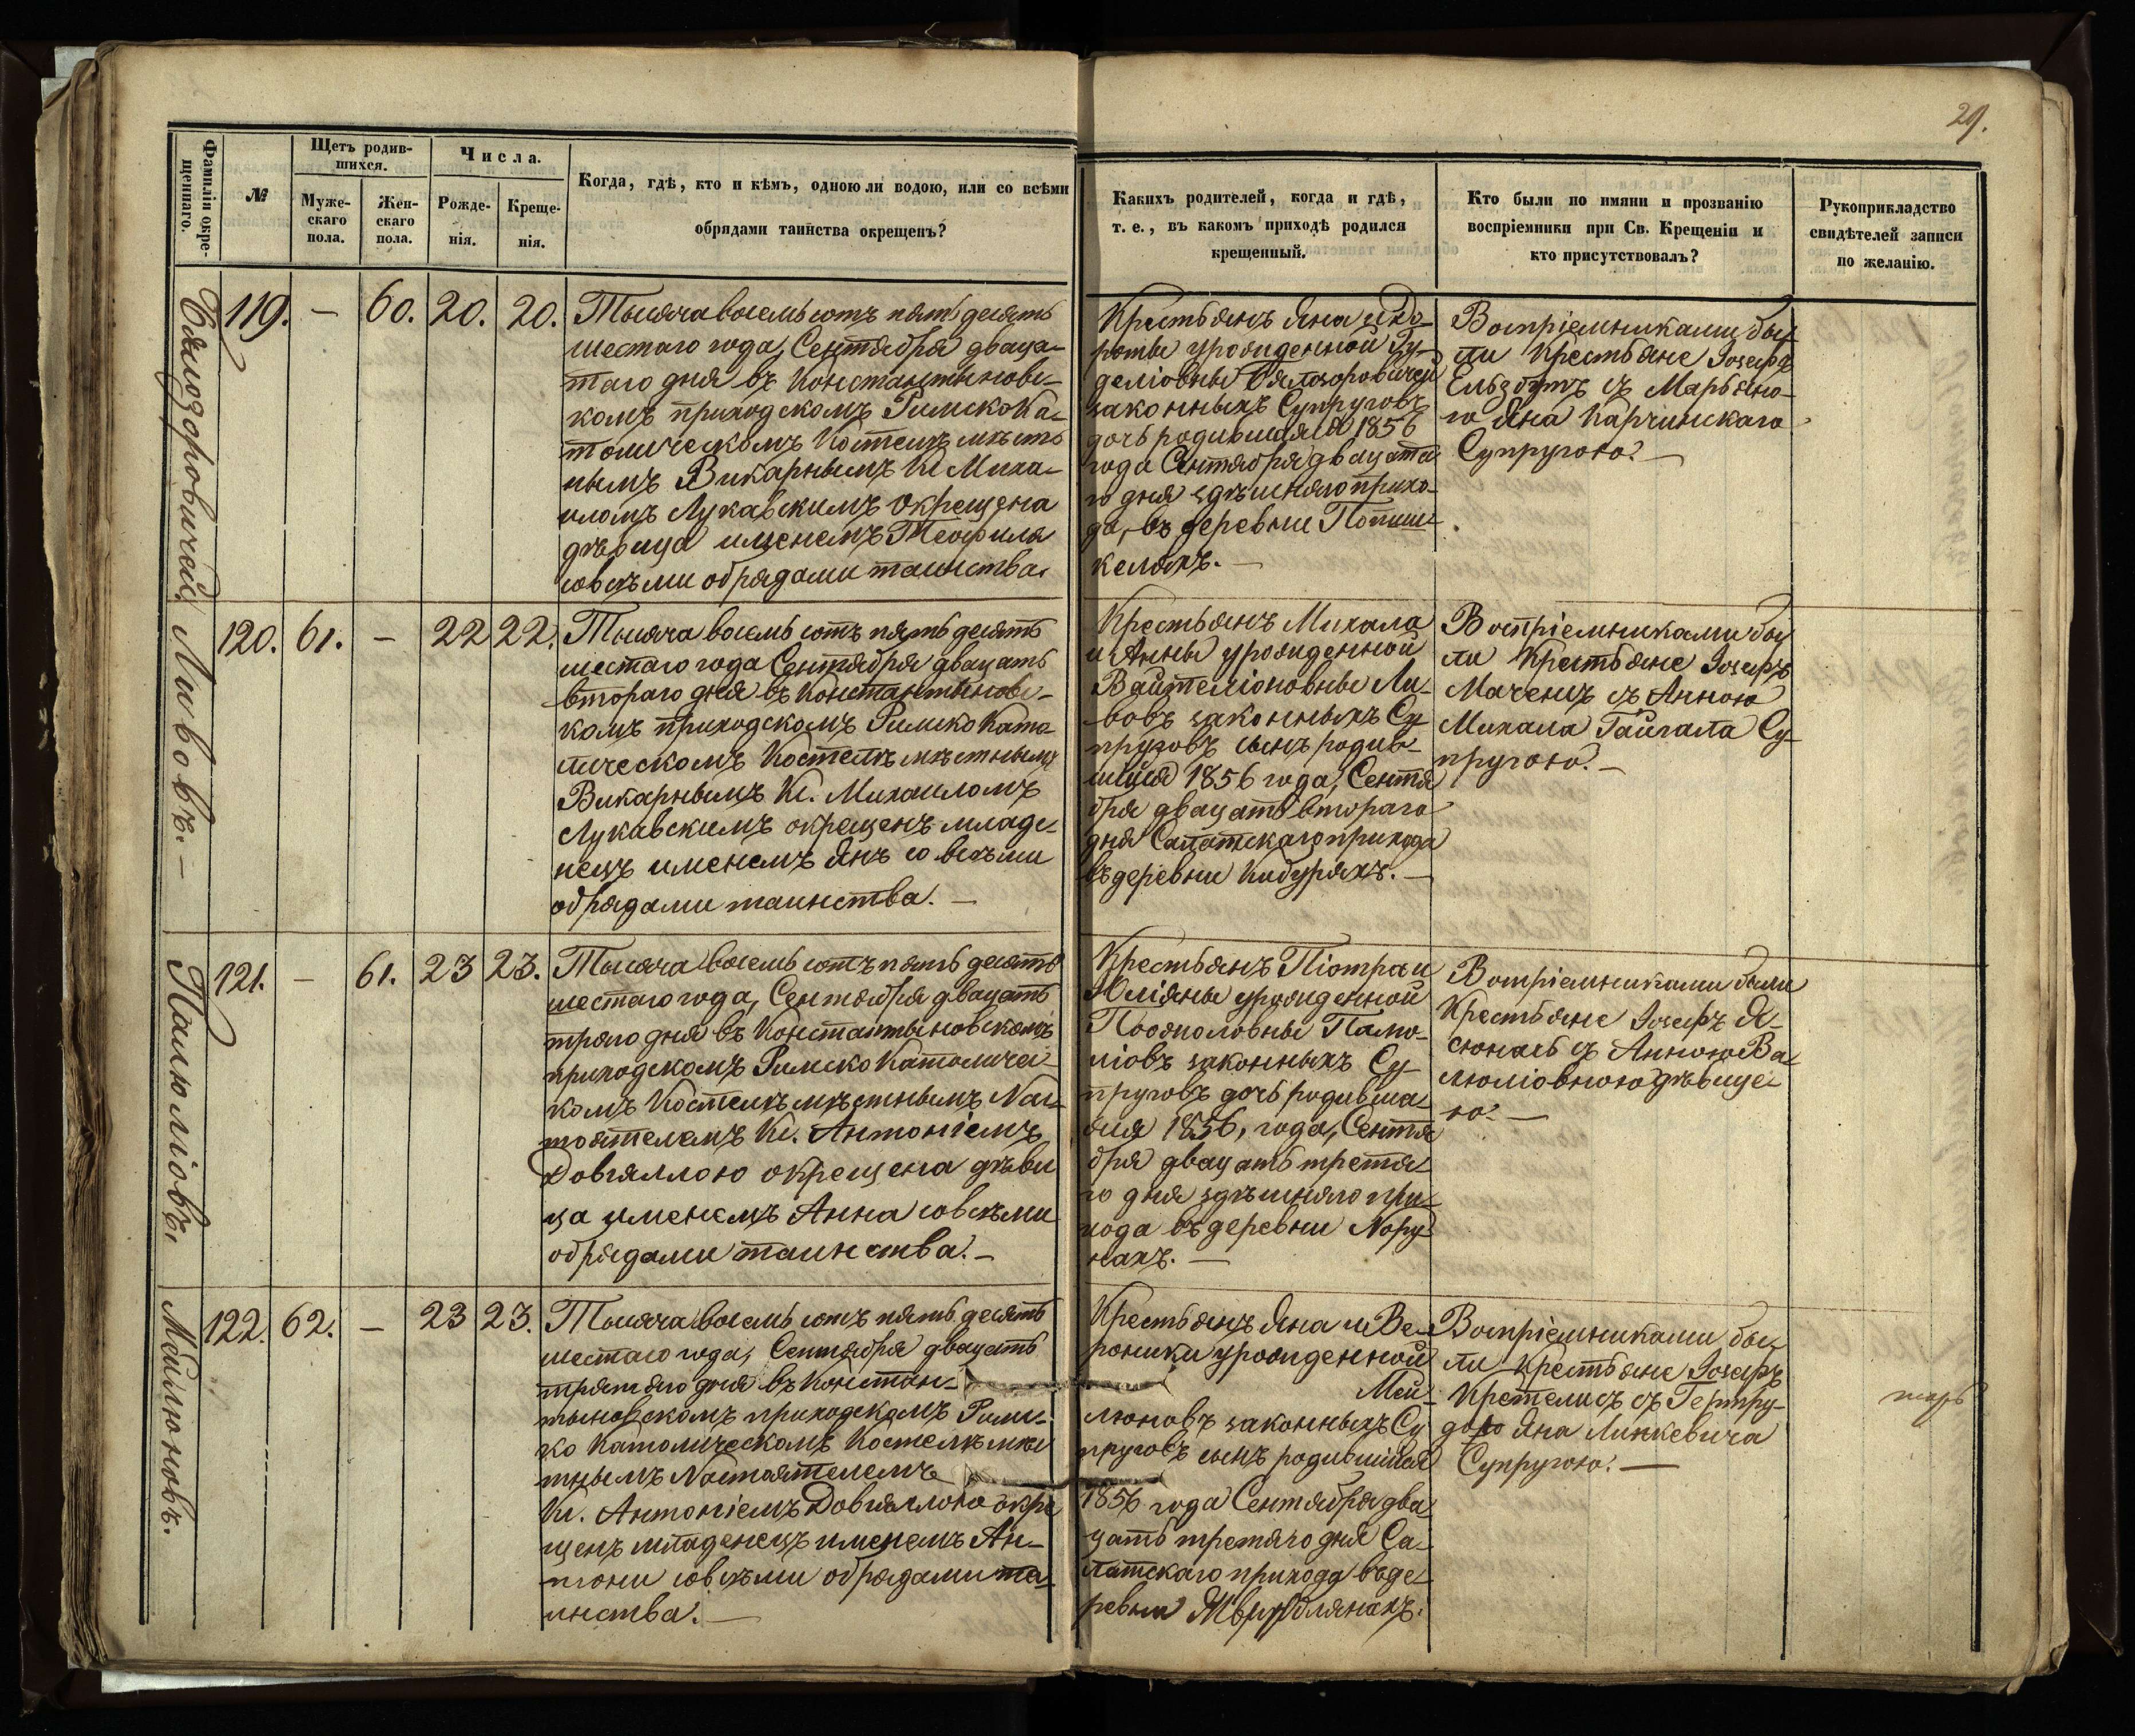 29.
Фамиліи окре-
щеннаго.
№
Щетъ родив-
шихся.
Муже-
скаго
пола.
Жен-
скаго
пола.
Числа.
Рожде-
нія.
Креще-
нія.
Когда, гдѣ, кто и кѣмъ, одною ли водою, или со всѣми
обрядами таинства окрещенъ?
Какихъ родителей, когда и гдѣ,
т. е., въ какомъ приходѣ родился
крещенный.
Кто были по имяни и прозванію
воспріемники при Св. Крещеніи и
кто присутствовалъ?
Рукоприкладство
свидѣтелей записи
по желанію.
Бялозоровичей
119. — 60. 20. 20.
Тысяча восемь сотъ пять десять
шестаго года, Сентября дваца-
таго дня въ Константыновс-
комъ приходскомъ Римско Ка-
толическомъ Костелѣ мѣст-
нымъ Викарнымъ Кс Миха-
иломъ Лукавскимъ окрещена
дѣвица именемъ Теофиля
со всѣми обрядами таинства.
Крестьянъ Яна и До-
роты урожденной Гу-
деліовны Бялозоровичей
законныхъ Супруговъ
дочь родившаяся 1856
года Сентября двацата-
го дня здѣшняго прихо-
да, въ деревни Попиш-
келяхъ. —
Воспріемниками бы-
ли Крестьяне Іозефъ
Ельзбутъ съ Марьяно-
ю Яна Карчинскаго
Супругою. —
Ливовъ. —
120. 61. — 22 22.
Тысяча восемь сотъ пять десять
шестаго года Сентября двацать
втораго дня въ Константыновс-
комъ приходскомъ Римско Като-
лическомъ Костелѣ мѣстнымъ
Викарнымъ Кс. Михаиломъ
Лукавскимъ окрещенъ младе-
нецъ именемъ Янъ со всѣми
обрядами таинства. —
Крестьянъ Михала
и Анны урожденной
Вайтеліоновны Ли-
вовъ законныхъ Су-
пруговъ сынъ родив-
шійся 1856 года, Сентя
бря двацать втораго
дня Салатскаго прихода
въ деревни Кибуряхъ. —
Воспріемниками бы
ли Крестьяне Іозефъ
Маченъ съ Анною
Михала Гайгала Су-
пругою. —
Палюліовъ.
121. — 61. 23 23.
Тысяча восемь сотъ пять десять
шестаго года, Сентября двацать
тряго дня въ Константыновскомъ
приходскомъ Римско Католичес-
комъ Костелѣ мѣстнымъ Nас-
тоятелемъ Кс. Антоніемъ
Довгяллою окрещена дѣви
ца именемъ Анна со всѣми
обрядами таинства. —
Крестьянъ Піотра и
Юліяны урожденной
Палю-
ліовъ законныхъ Су-
пруговъ дочь родивша-
яся 1856, года, Сентя
бря двацать третья-
го дня здѣшняго при-
хода въ деревни Nору
нахъ. —
Воспріемниками были
Крестьяне Іозефъ Я-
сюнасъ съ Анною Ва-
люліовною дѣвице-
ю. —
Мейлюновъ.
122. 62. — 23 23.
Тысяча восемь сотъ пять десять
шестаго года, Сентября двацать
третяго дня въ Констан-
тыновскомъ приходскомъ Римс-
ко Католическомъ Костелѣ мѣс
тнымъ Nастоятелемъ
Кс. Антоніемъ Довгяллою окре
щенъ младенецъ именемъ Ан-
тони со всѣми обрядами та-
инства. —
Крестьянъ Яна и Ве-
роники урожденной
Мей-
люновъ законныхъ Су
пруговъ сынъ родившійся
1856 года Сентября два
цать третяго дня Са-
латскаго прихода въ де-
ревни
Воспріемниками бы-
ли Крестьяне Іозефъ
Кретелисъ съ Гертру-
дою Яна Линкевича
Супругою. —